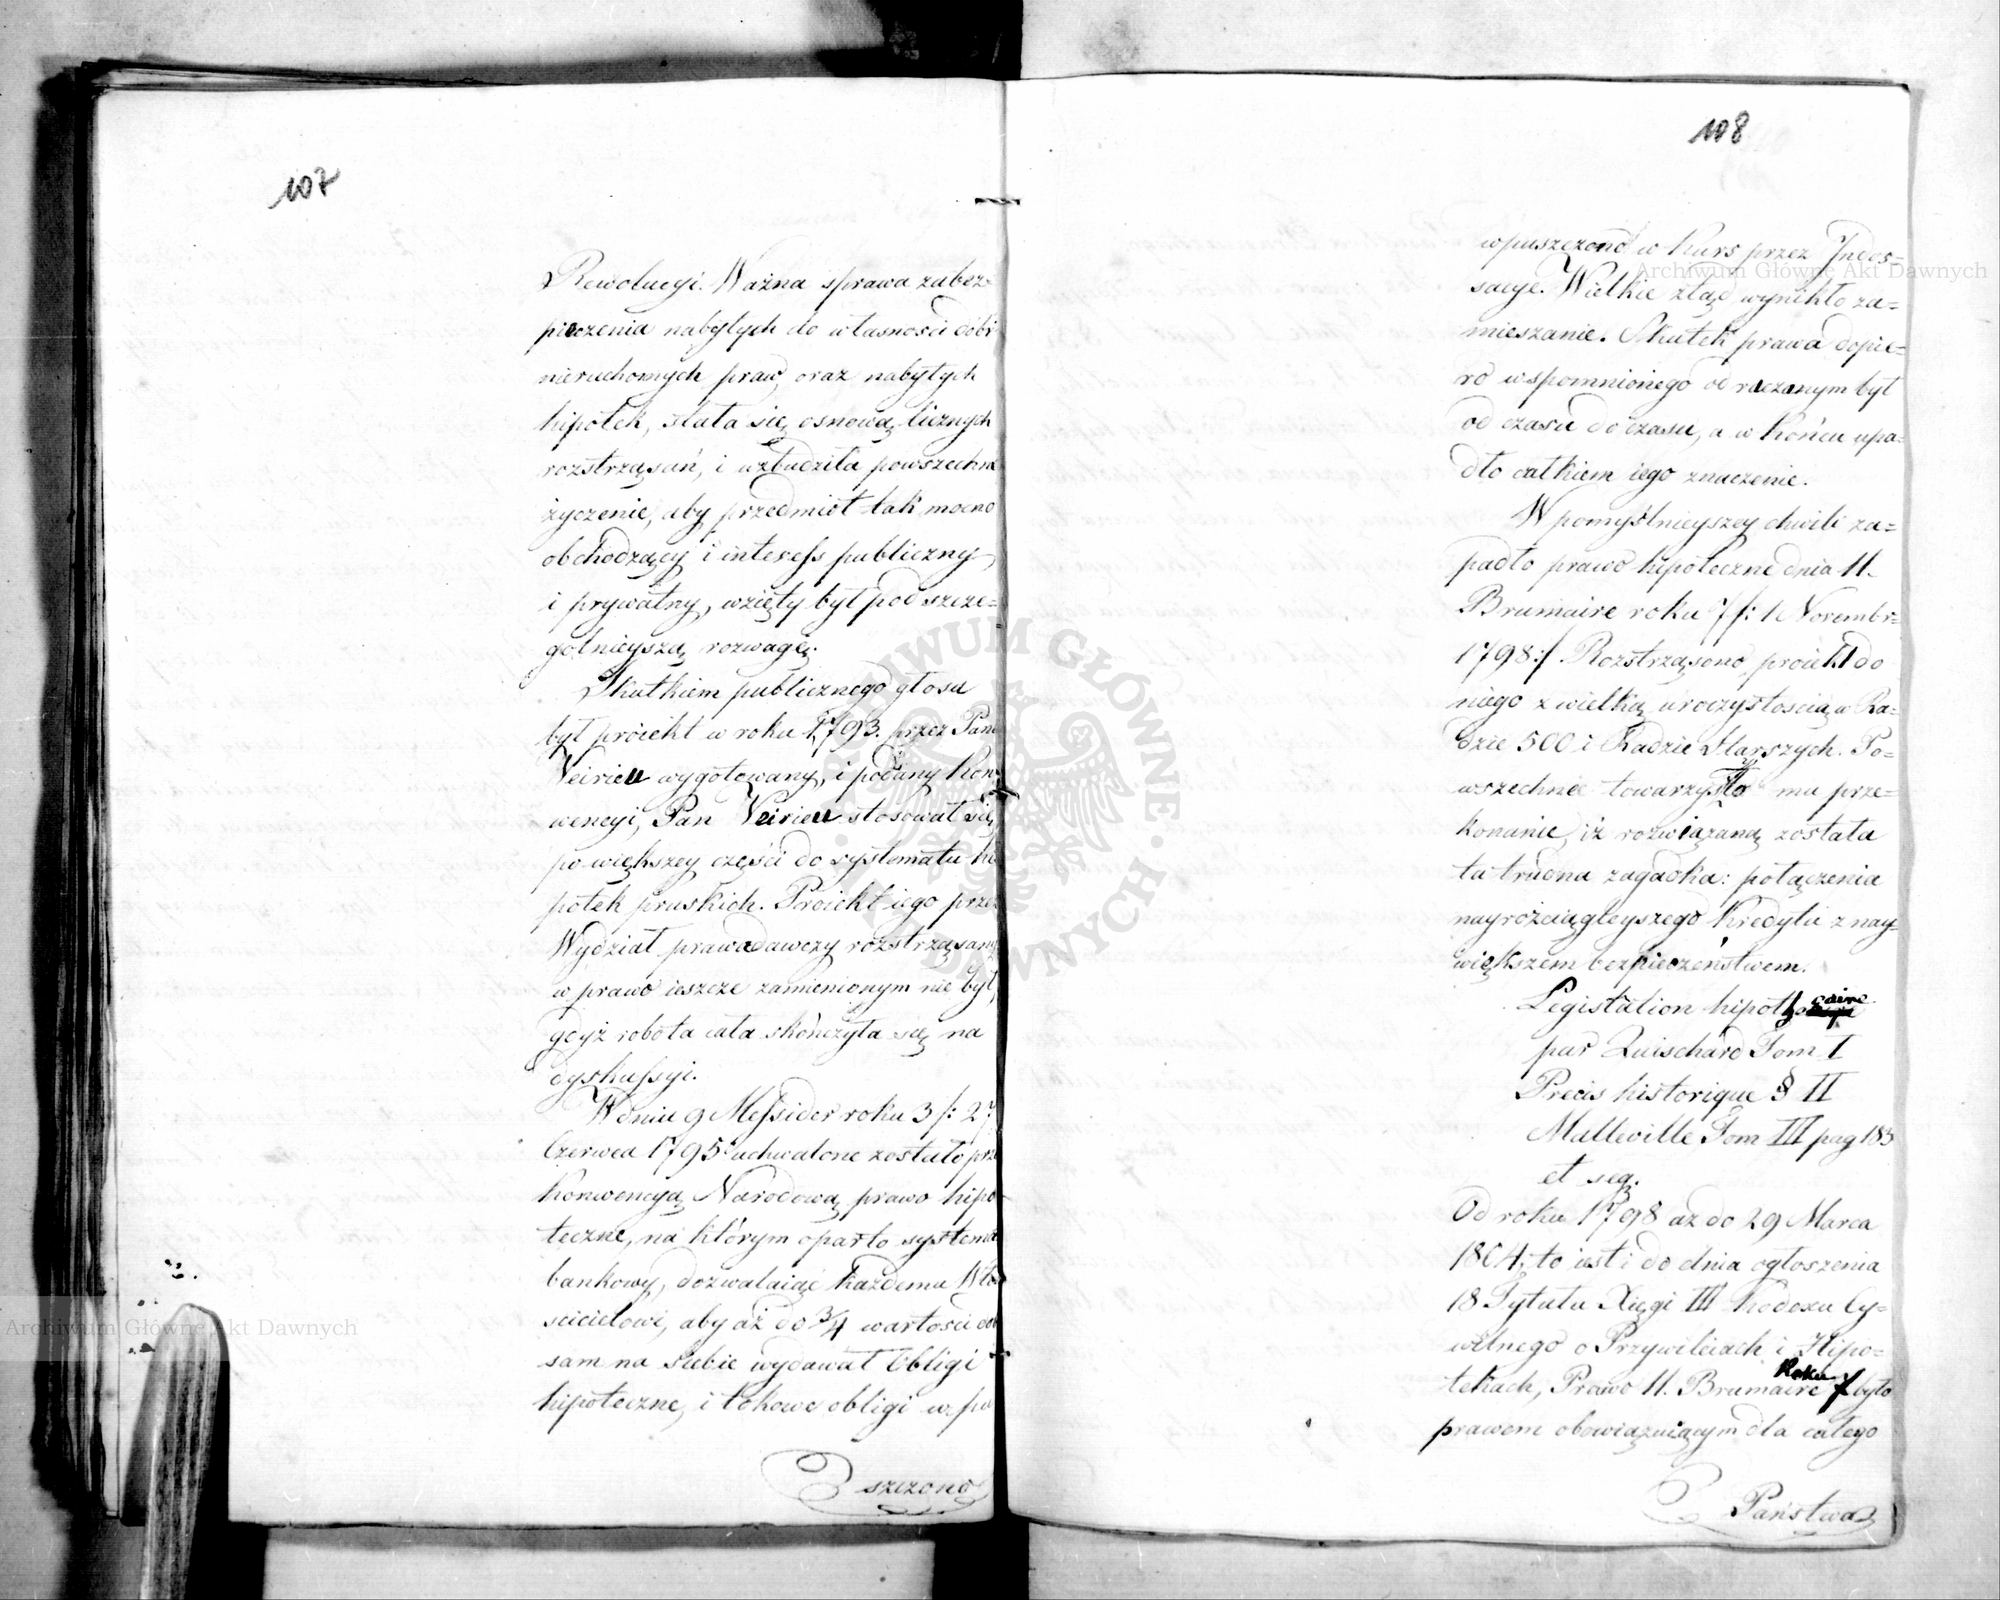 107
Rewolucyi. Ważna sprawa zabez=
pieczenia nabytych do własności dóbr
nieruchomych praw, oraz nabytych
hipotek, stała się osnową licznych
roztrząsań, i wzbudziła powszechne
życzenie, aby przedmiot tak mocno
obchodzący i interess publiczny
i prywatny, wzięty był pod szcze=
gólnieyszą rozwagę.
Skutkiem publicznego głosu
był proiekt w roku 1793. przez Pana
Veirieu wygotowany, i podany Kon
wencyi, Pan Veirieu stosował się
po większey części do systematu hi
potek pruskich. Proiekt iego przez
Wydział prawodawczy roztrząsany
w prawo ieszcze zamienionym nie był,
gdyż robota cała skończyła się na
dyskussyi.
W dniu 9 Messidor roku 3 /: 27
Czerwca 1795 uchwalone zostało prz
Konwencyą Narodową prawo hipo
teczne, na którym oparto systema
bankowy, dozwalaiąc każdemu Wła
scicielowi, aby aż do 3/4 wartości dób
sam na siebie wydawał Obligi
hipoteczne, i takowe obligi w pu
szczono
108
wpuszczono w kurs przez Indos=
sacye. Wielkie ztąd wynikło za=
mieszanie. Skutek prawa dopie=
ro wspomnionego odraczanym był
od czasu do czasu, a w końcu upa=
dło całkiem iego znaczenie.
W pomyślnieyszey chwili za=
padło prawo hipoteczne dnia 11.
Brumaire roku 7 /: 1 Novembr=
1798 :/. Roztrząsono proiekt do
niego z wielką uroczystością w Ra=
dzie 500 i Radzie Starszych. Po=
wszechne towarzyszyło mu prze=
konanie, iż rozwiązaną została
ta trudna zagadka: połączenia
nayrozciągleyszego Kredytu z nay=
większem bezpieczeństwem.
Legislation hipothecaire
par Guischard Tom I
Precis historique § II
Malleville Tom III pag 183
et seq.
Od roku 1798 aż do 29 Marca
1804, to iest i do dnia ogłoszenia
18 Tytułu Xięgi III Kodexu Cy=
wilnego o Przywileiach i Hipo=
tekach, Prawo 11. Brumaire Roku 7 było
prawem obowiązuiącym dla całego
Państwa
Archiwum Główne Akt Dawnych
Archiwum Główne Akt Dawnych
ARCHIWUM GŁÓWNE AKT DAWNYCH